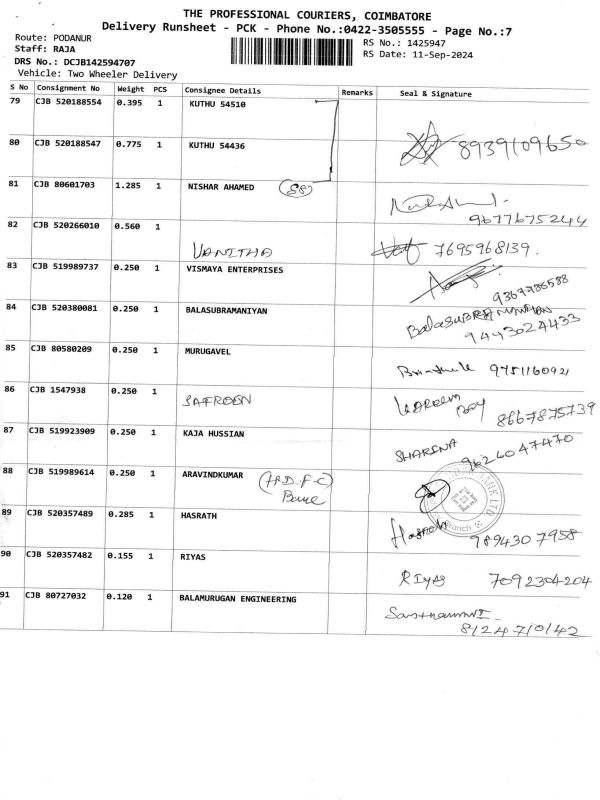 THE PROFESSIONAL COURIERS, COIMBATORE
Delivery Runsheet - PCK - Phone No.:0422-3505555 - Page No.:7
Route: PODANUR
RS No.: 1425947
Staff: RAJA
RS Date: 11-Sep-2024
DRS No.: DCJB142594707
Vehicle: Two Wheeler Delivery
S No Consignment No Weight PCS Consignee Details Remarks Seal & Signature
79 CJB 520188554 0.395 1 KUTHU 54510
80 CJB 520188547 0.775 1 KUTHU 54436 8939109650
81 CJB 80601703 1.285 1 NISHAR AHAMED (88)
9677675244
82 CJB 520266010 0.560 1
VANITHA 7695968139.
83 CJB 519989737 0.250 1 VISMAYA ENTERPRISES
9367785588
84 CJB 520380081 0.250 1 BALASUBRAMANIYAN BalaSUBRAMANIYAN
9443024433
85 CJB 80580209 0.250 1 MURUGAVEL 9751160921
86 CJB 1547938 0.250 1 SAFROON KAREEM
Boy 8667875739
87 CJB 519923909 0.250 1 KAJA HUSSIAN SHARENA
9626047470
88 CJB 519989614 0.250 1 ARAVINDKUMAR (H.D.F.C)
BANK LTD
Branch
89 CJB 520357489 0.285 1 HASRATH Hasrath
9894307958
90 CJB 520357482 0.155 1 RIYAS RIYAS 7092304204
91 CJB 80727032 0.120 1 BALAMURUGAN ENGINEERING
8124710142